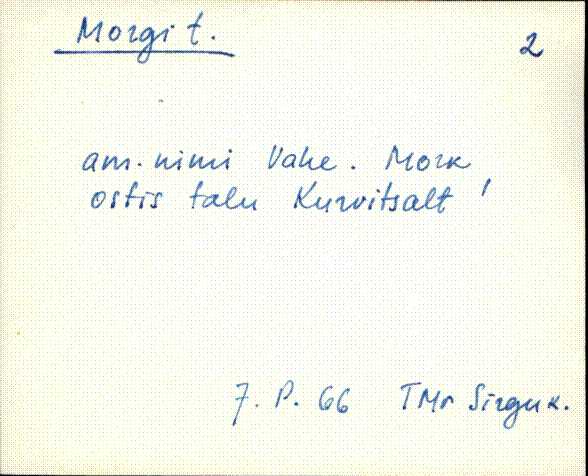 Morgi t.
2
am. nimi Vahe. Mork
ostis talu Kurvitsalt!
7. P. 66 TMr Sirguk.